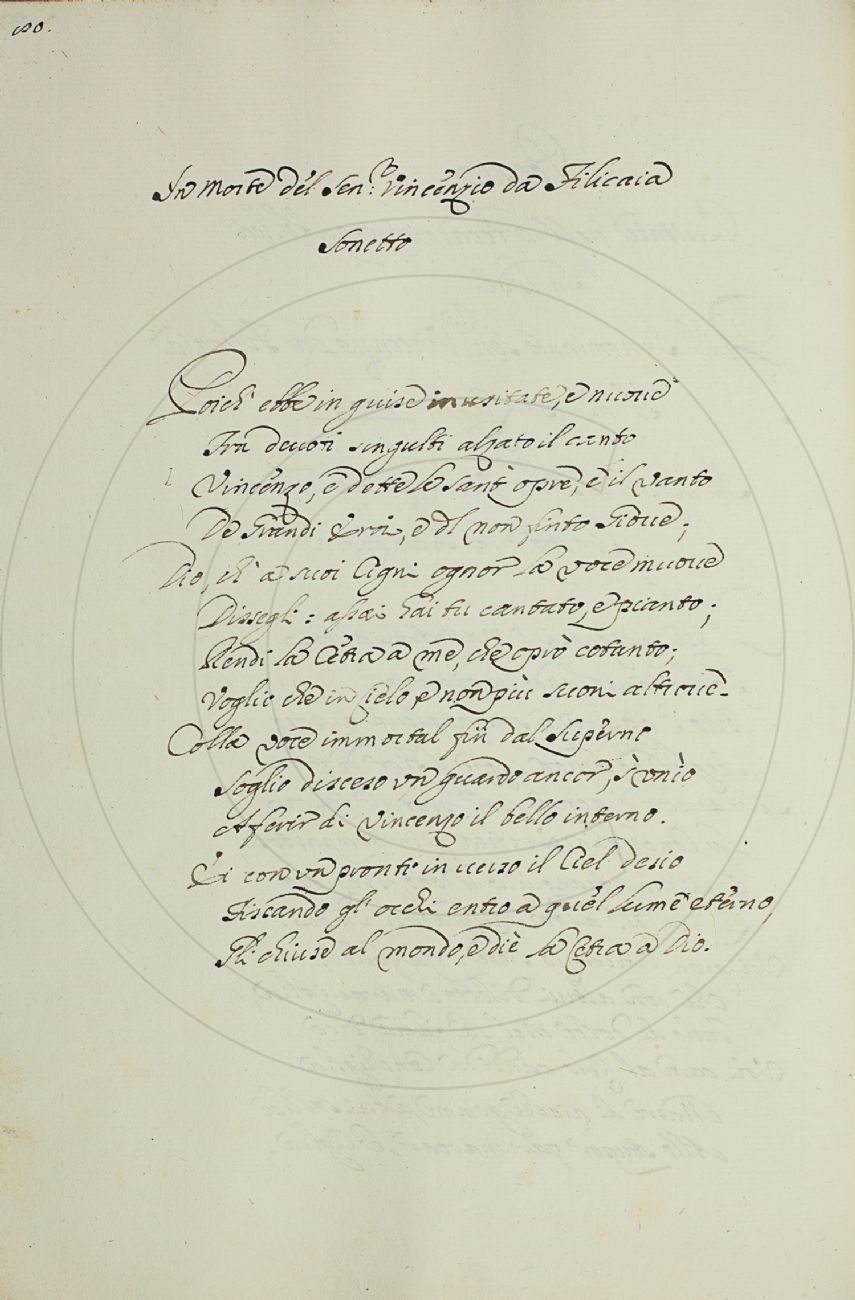 80.
In Morte del Sen.r Vincenzio da Filicaia
Sonetto
Poich' ebbe in guise inusitate, e nuove
Fra devoti singulti alzato il canto
Vincenzo, e dette le sant' opre, e il vanto
De Grandi Eroi, e d'l non finto Giove;
Dio, ch' a' suoi Cigni ognor la voce muove
Dissegli: assai hai tu cantato, e pianto;
Rendi la Cetra a me, che oprò cotanto;
Voglio che in Cielo, e non più suoni altrove.
Colla voce immortal fin dal superno
Soglio disceso un guardo ancor, s'unìo
A ferir di Vincenzo il bello interno.
Ei con un pronto inverso il Ciel desio
Fiscando gl' occhi entro a quel lume eterno,
Gli chiuse al mondo, e diè la Cetra a Dio.